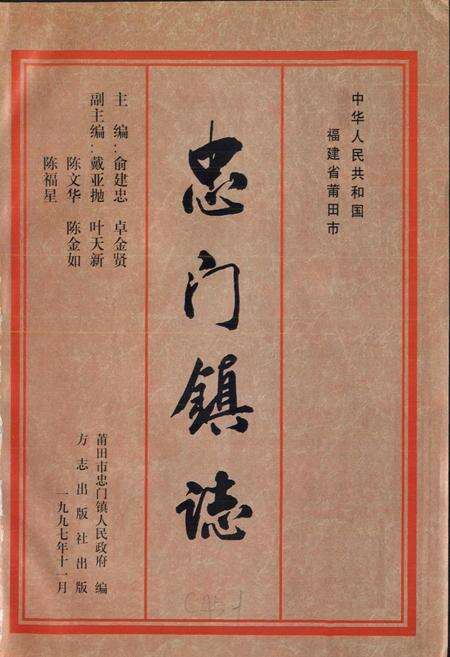 中华人民共和国
福建省莆田市
忠门镇誌
主编：俞建忠 卓金贤
副主编：戴亚抛 叶天新
陈文华 陈金如
陈福星
莆田市忠门镇人民政府 编
方志出版社出版
一九九七年十一月